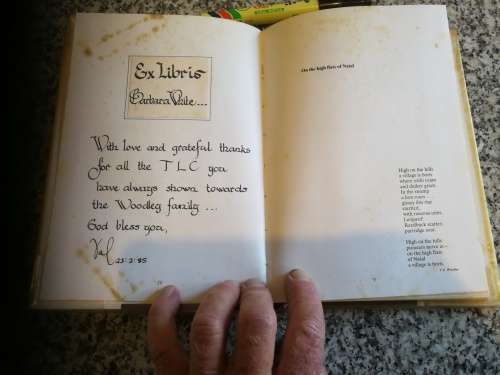 Ex Libris
Barbara White....
With love and grateful thanks
for all the TLC you
have always shown towards
the Woodley family ...
God bless you,
Val
23·2·85
On the high flats of Natal
High on the hills
a village is born
where wilds roam
and duiker graze.
In the swamp
glossy ibis
startled,
with raucous cries
Reedbuck scatter,
partridge soar.
High on the hills
on the high flats
of Natal
a village is born.